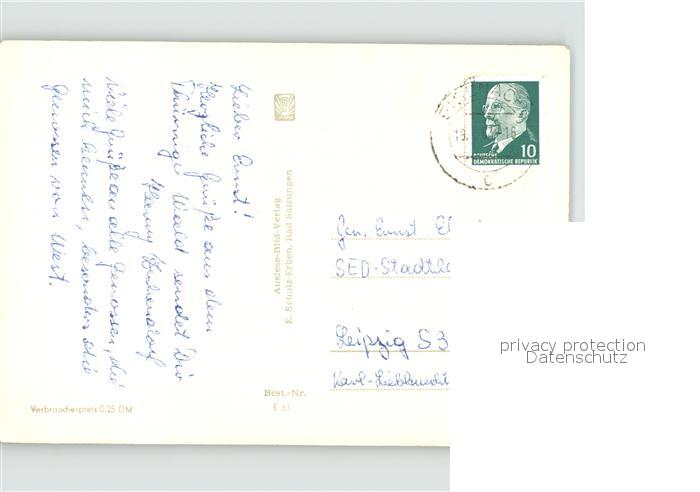 Lieber Ernst!
Herzliche Grüße aus dem
Thüringer Wald sendet Dir
Viele Grüße an alle Genossen, die
mich kennen, besonders die
Genossen von West.
Auslese-Bild-Verlag
E. Schulz Erben, Bad Salzungen
Best.-Nr.
E 61
Verbraucherpreis 0.25 DM
10
DEUTSCHE
DEMOKRATISCHE REPUBLIK
Gen. Ernst
SED-Stadtl
Leipzig S3
Karl-Liebknecht
privacy protection
Datenschutz